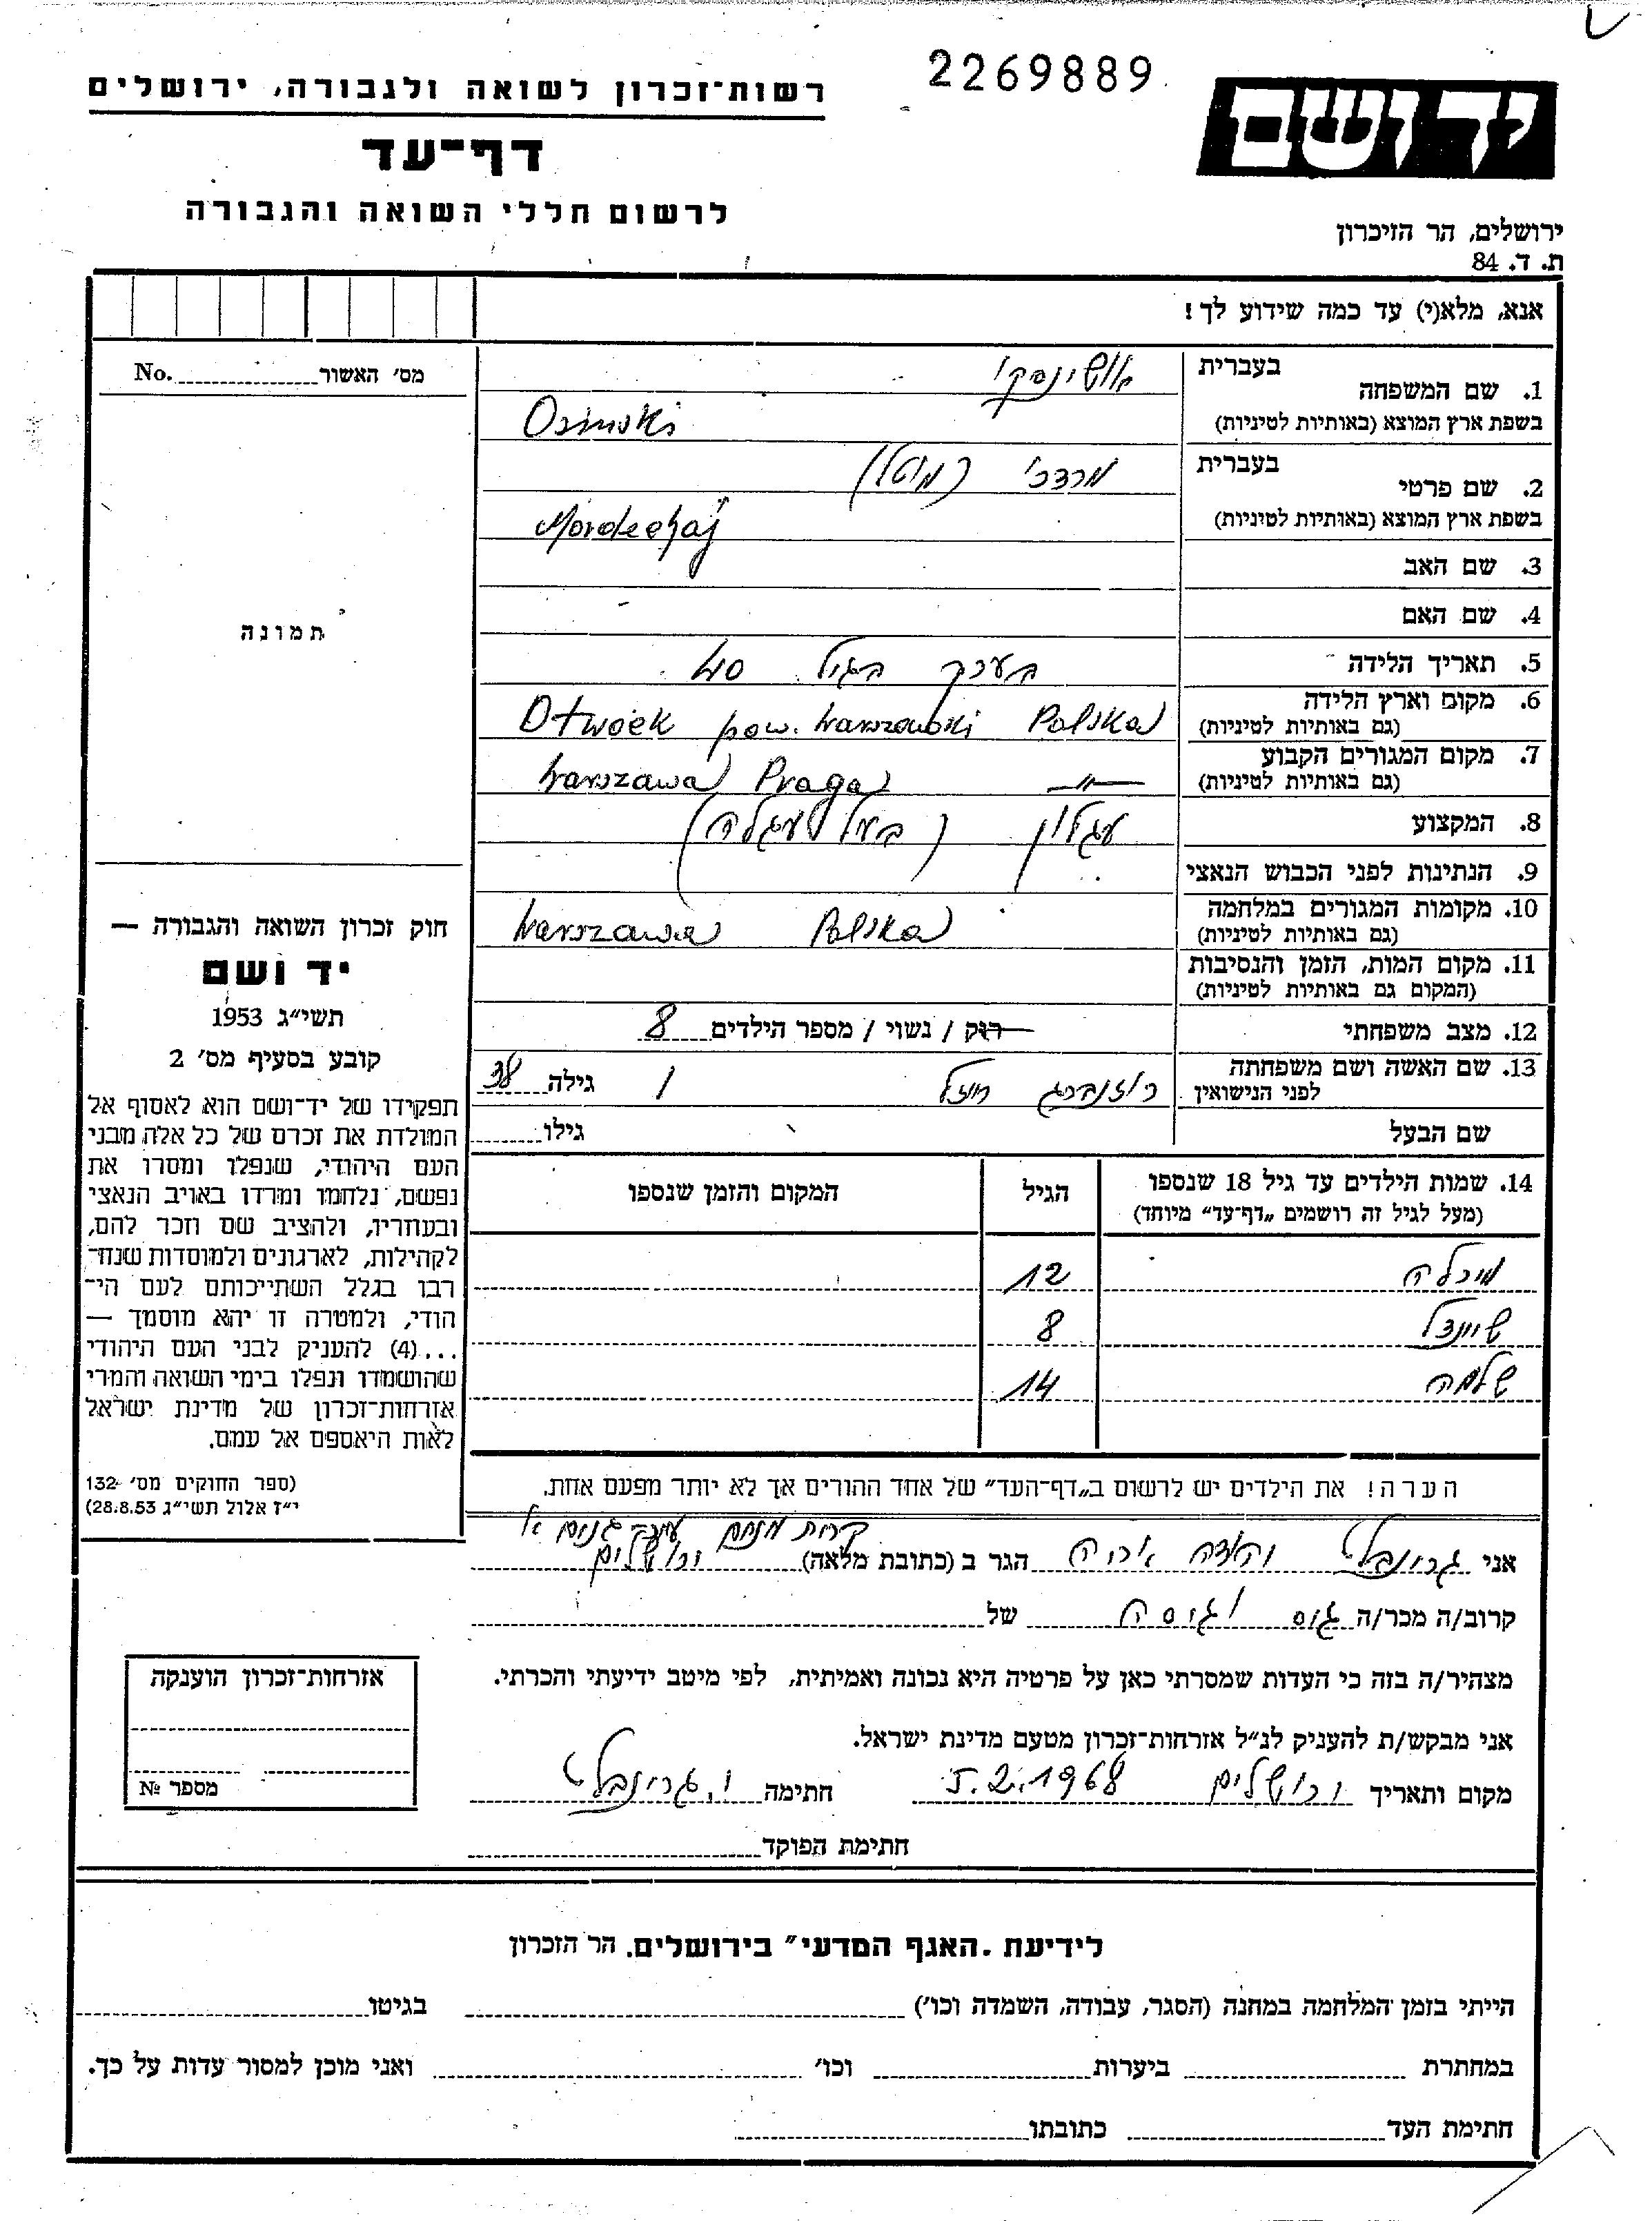 2269889
יד ושם
רשות־זכרון לשואה ולגבורה, ירושלים
דף־עד
לרשום חללי השואה והגבורה
ירושלים, הר הזיכרון
ת. ד. 84
אנא, מלא(י) עד כמה שידוע לך!
מס׳ האשור No.
תמונה
1. שם המשפחה
בעברית אושינסקי
בשפת ארץ המוצא (באותיות לטיניות) Osinski
2. שם פרטי
בעברית מרדכי (מוטל)
בשפת ארץ המוצא (באותיות לטיניות) Mordechaj
3. שם האב
4. שם האם
5. תאריך הלידה בערך בגיל 40
6. מקום וארץ הלידה
(גם באותיות לטיניות) Otwock pow. Warszawski Polska
7. מקום המגורים הקבוע
(גם באותיות לטיניות) Warszawa Praga —"—
8. המקצוע עגלון (בעל עגלה)
9. הנתינות לפני הכבוש הנאצי
10. מקומות המגורים במלחמה
(גם באותיות לטיניות) Warszawa Polska
11. מקום המות, הזמן והנסיבות
(המקום גם באותיות לטיניות)
12. מצב משפחתי רוק / נשוי / מספר הילדים 8
13. שם האשה ושם משפחתה
לפני הנישואין רוזנברג גילה 38
שם הבעל גילו
14. שמות הילדים עד גיל 18 שנספו
(מעל לגיל זה רושמים „דף־עד" מיוחד)
הגיל
המקום והזמן שנספו
מיכלה 12
שיינדל 8
שלמה 14
הערה! את הילדים יש לרשום ב„דף־העד" של אחד ההורים אך לא יותר מפעם אחת.
חוק זכרון השואה והגבורה —
יד ושם
תשי״ג 1953
קובע בסעיף מס׳ 2
תפקידו של יד־ושם הוא לאסוף אל
המולדת את זכרם של כל אלה מבני
העם היהודי, שנפלו ומסרו את
נפשם, נלחמו ומרדו באויב הנאצי
ובעוזריו, ולהציב שם וזכר להם,
לקהילות, לארגונים ולמוסדות שנח־
רבו בגלל השתייכותם לעם הי־
הודי, ולמטרה זו יהא מוסמך —
...(4) להעניק לבני העם היהודי
שהושמדו ונפלו בימי השואה והמרי
אזרחות־זכרון של מדינת ישראל
לאות היאספם אל עמם.
(ספר החוקים מס׳ 132
י״ז אלול תשי״ג 28.8.53)
קרית מנחם
אני גרינבלט הגר ב (כתובת מלאה) ירושלים
קרוב/ה מכר/ה גיס / גיסה של
מצהיר/ה בזה כי העדות שמסרתי כאן על פרטיה היא נכונה ואמיתית, לפי מיטב ידיעתי והכרתי.
אני מבקש/ת להעניק לנ״ל אזרחות־זכרון מטעם מדינת ישראל.
מקום ותאריך ירושלים 5.2.1968 חתימה י. גרינבלט
חתימת הפוקד
אזרחות־זכרון הוענקה
מספר №
לידיעת „האגף המדעי" בירושלים, הר הזכרון
הייתי בזמן המלחמה במחנה (הסגר, עבודה, השמדה וכו׳) בגיטו
במחתרת ביערות וכו׳ ואני מוכן למסור עדות על כך.
חתימת העד כתובתו